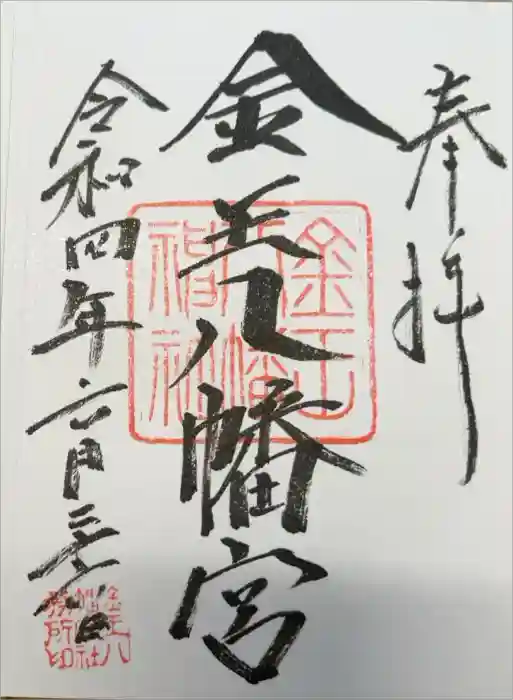 奉拝
金王八幡宮
令和四年六月
金王
八幡
神社
金王八
幡神社
務所印